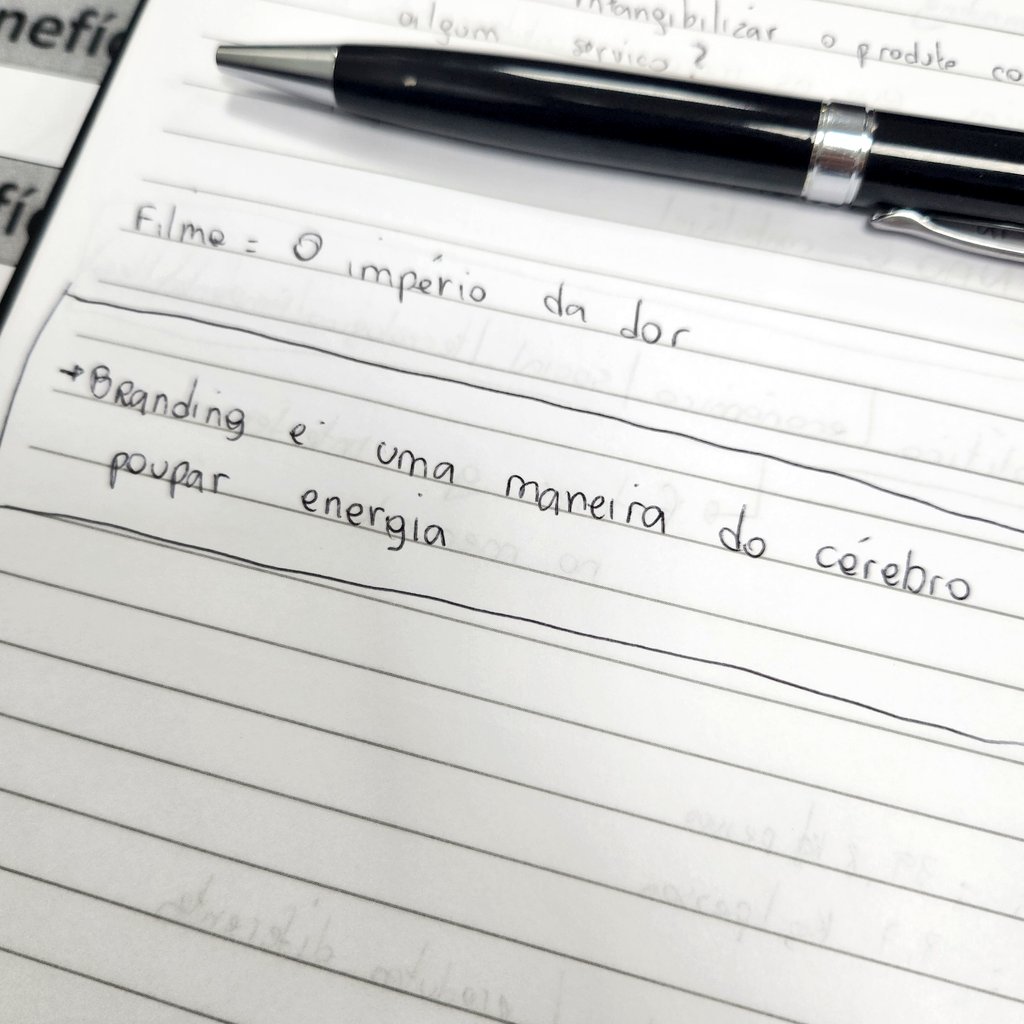 nefíc
fíc
intangibilizar o produto co
algum serviço?
Filme = O império da dor
→ Branding é uma maneira do cérebro
poupar energia